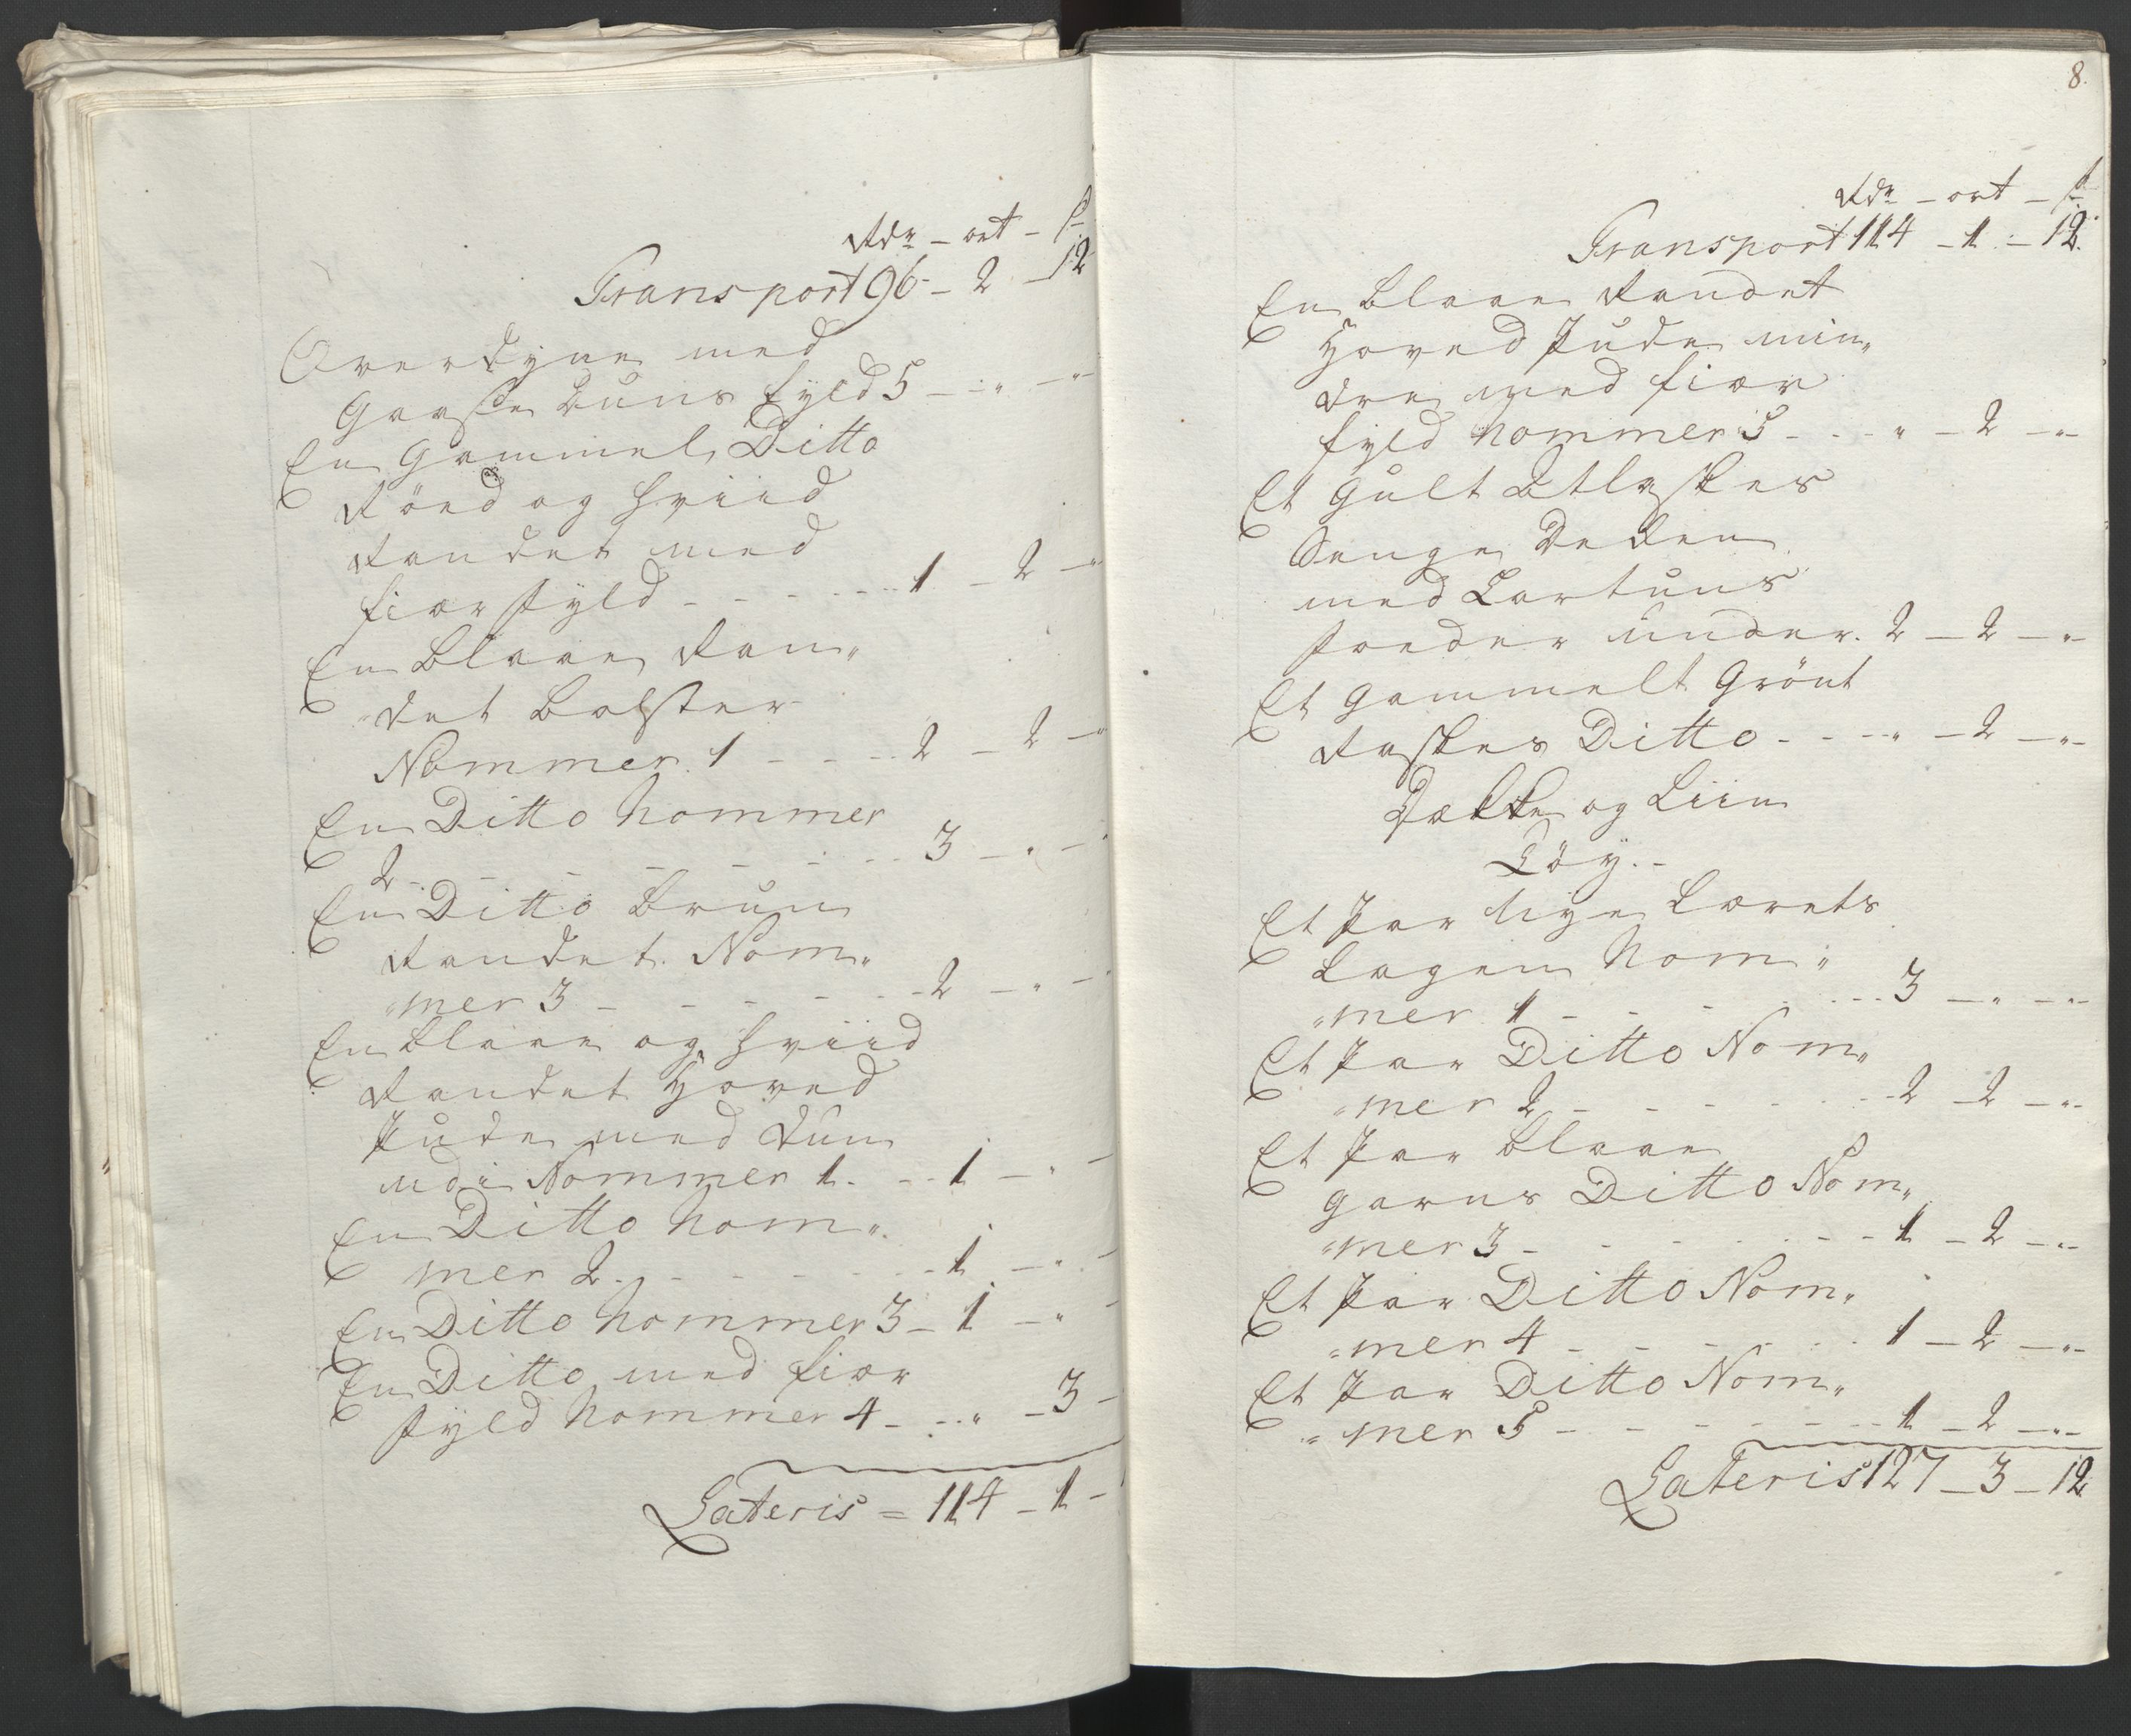 Rdr - ort - ß
Transport 96 - 2 - 12
Overdyne med
Gaasse Duuns fyld 5 - " - "
En Gammel Ditto
Röed og Hviid
Randet med
fiær fyld - - - - - 1 - 2 - "
En blaae Ran"
"det Bolster
Nommer 1 - - - - 2 - 2 - "
En Ditto Nommer
2 - - - - - - 3 - " -
En Ditto bruun
Randet Nom"
"mer 3 - - - - - - 2 - " -
En blaae og Hviid
Randet Hoved
Pude med duun
udi Nommer 1. - - 1 - " -
En Ditto Nom"
mer 2 - - - - - - 1 - " -
En Ditto Nommer 3 - 1 - " -
En Ditto med fiær
fyld Nommer 4 - - " - 3 -
Lateris = 114 - 1 -
8.
Rdr - ort - ß
Transport 114 - 1 - 12
En blaae Randet
Hoved Pude min"
dre med fiær
fyld Nommer 5 - - - " - 2 - "
Et Guult Atlaskes
Senge Decken
med Cartuns
foeder under. 2 - 2 - "
Et Gammelt Grönt
Raskes Ditto - - - " - 2 - "
Dække og Liin
Töy. -
Et Par Nye Lærets
Lagen Nom"
"mer 1 - - - - - - 3 - " - "
Et Par Ditto Nom"
"mer 2 - - - - - - 2 - 2 - "
Et Par blaae
garns Ditto Nom"
"mer 3 - - - - - - 1 - 2 - "
Et Par Ditto Nom"
"mer 4 - - - - - - 1 - 2 - "
Et Par Ditto Nom"
"mer 5 - - - - - - 1 - 2 - "
Lateris 127 - 3 - 12